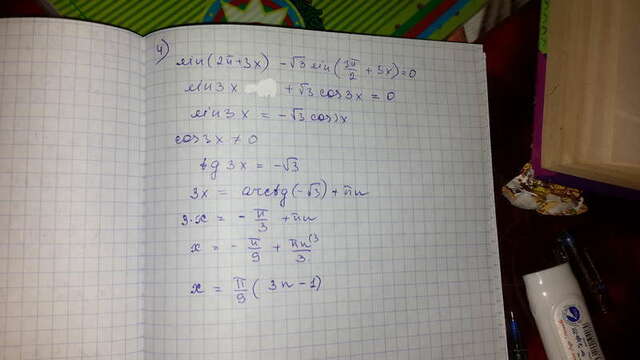 4)
sin(2π+3x) - √3 sin(3π/2 + 3x) = 0
sin 3x + √3 cos 3x = 0
sin 3x = - √3 cos 3x
cos 3x ≠ 0
tg 3x = - √3
3x = arctg(-√3) + πn
3·x = - π/3 + πn
x = - π/9 + πn/3 (3
x = π/9 (3n - 1)